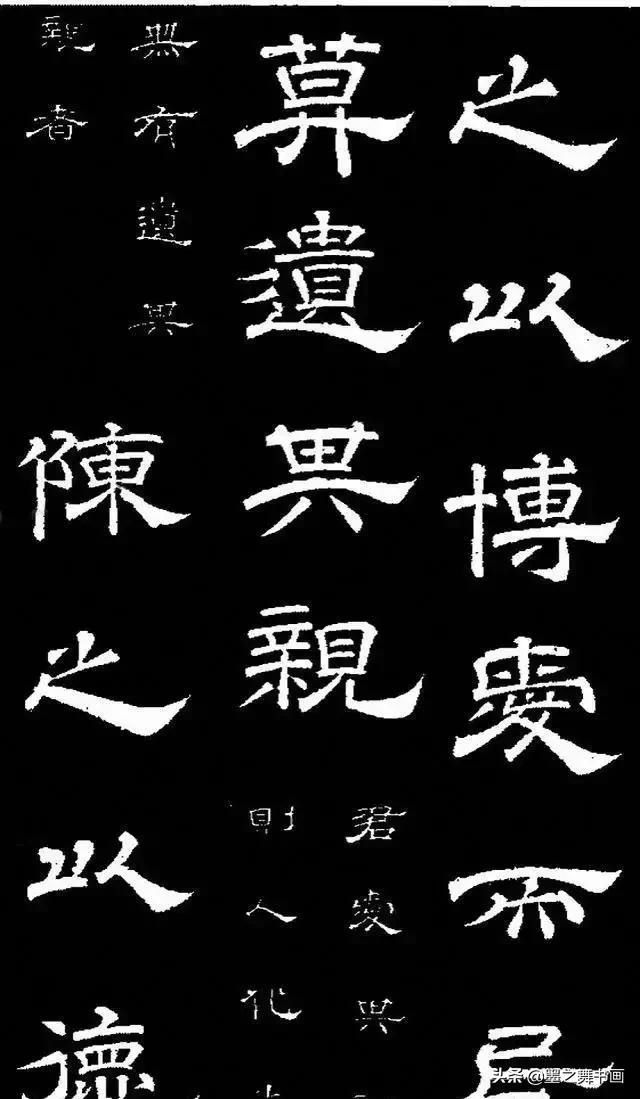 之以博愛而民
莫遺其親
君愛其
則人化
無有遺其
親者
陳之以德
头条 @墨之舞书画